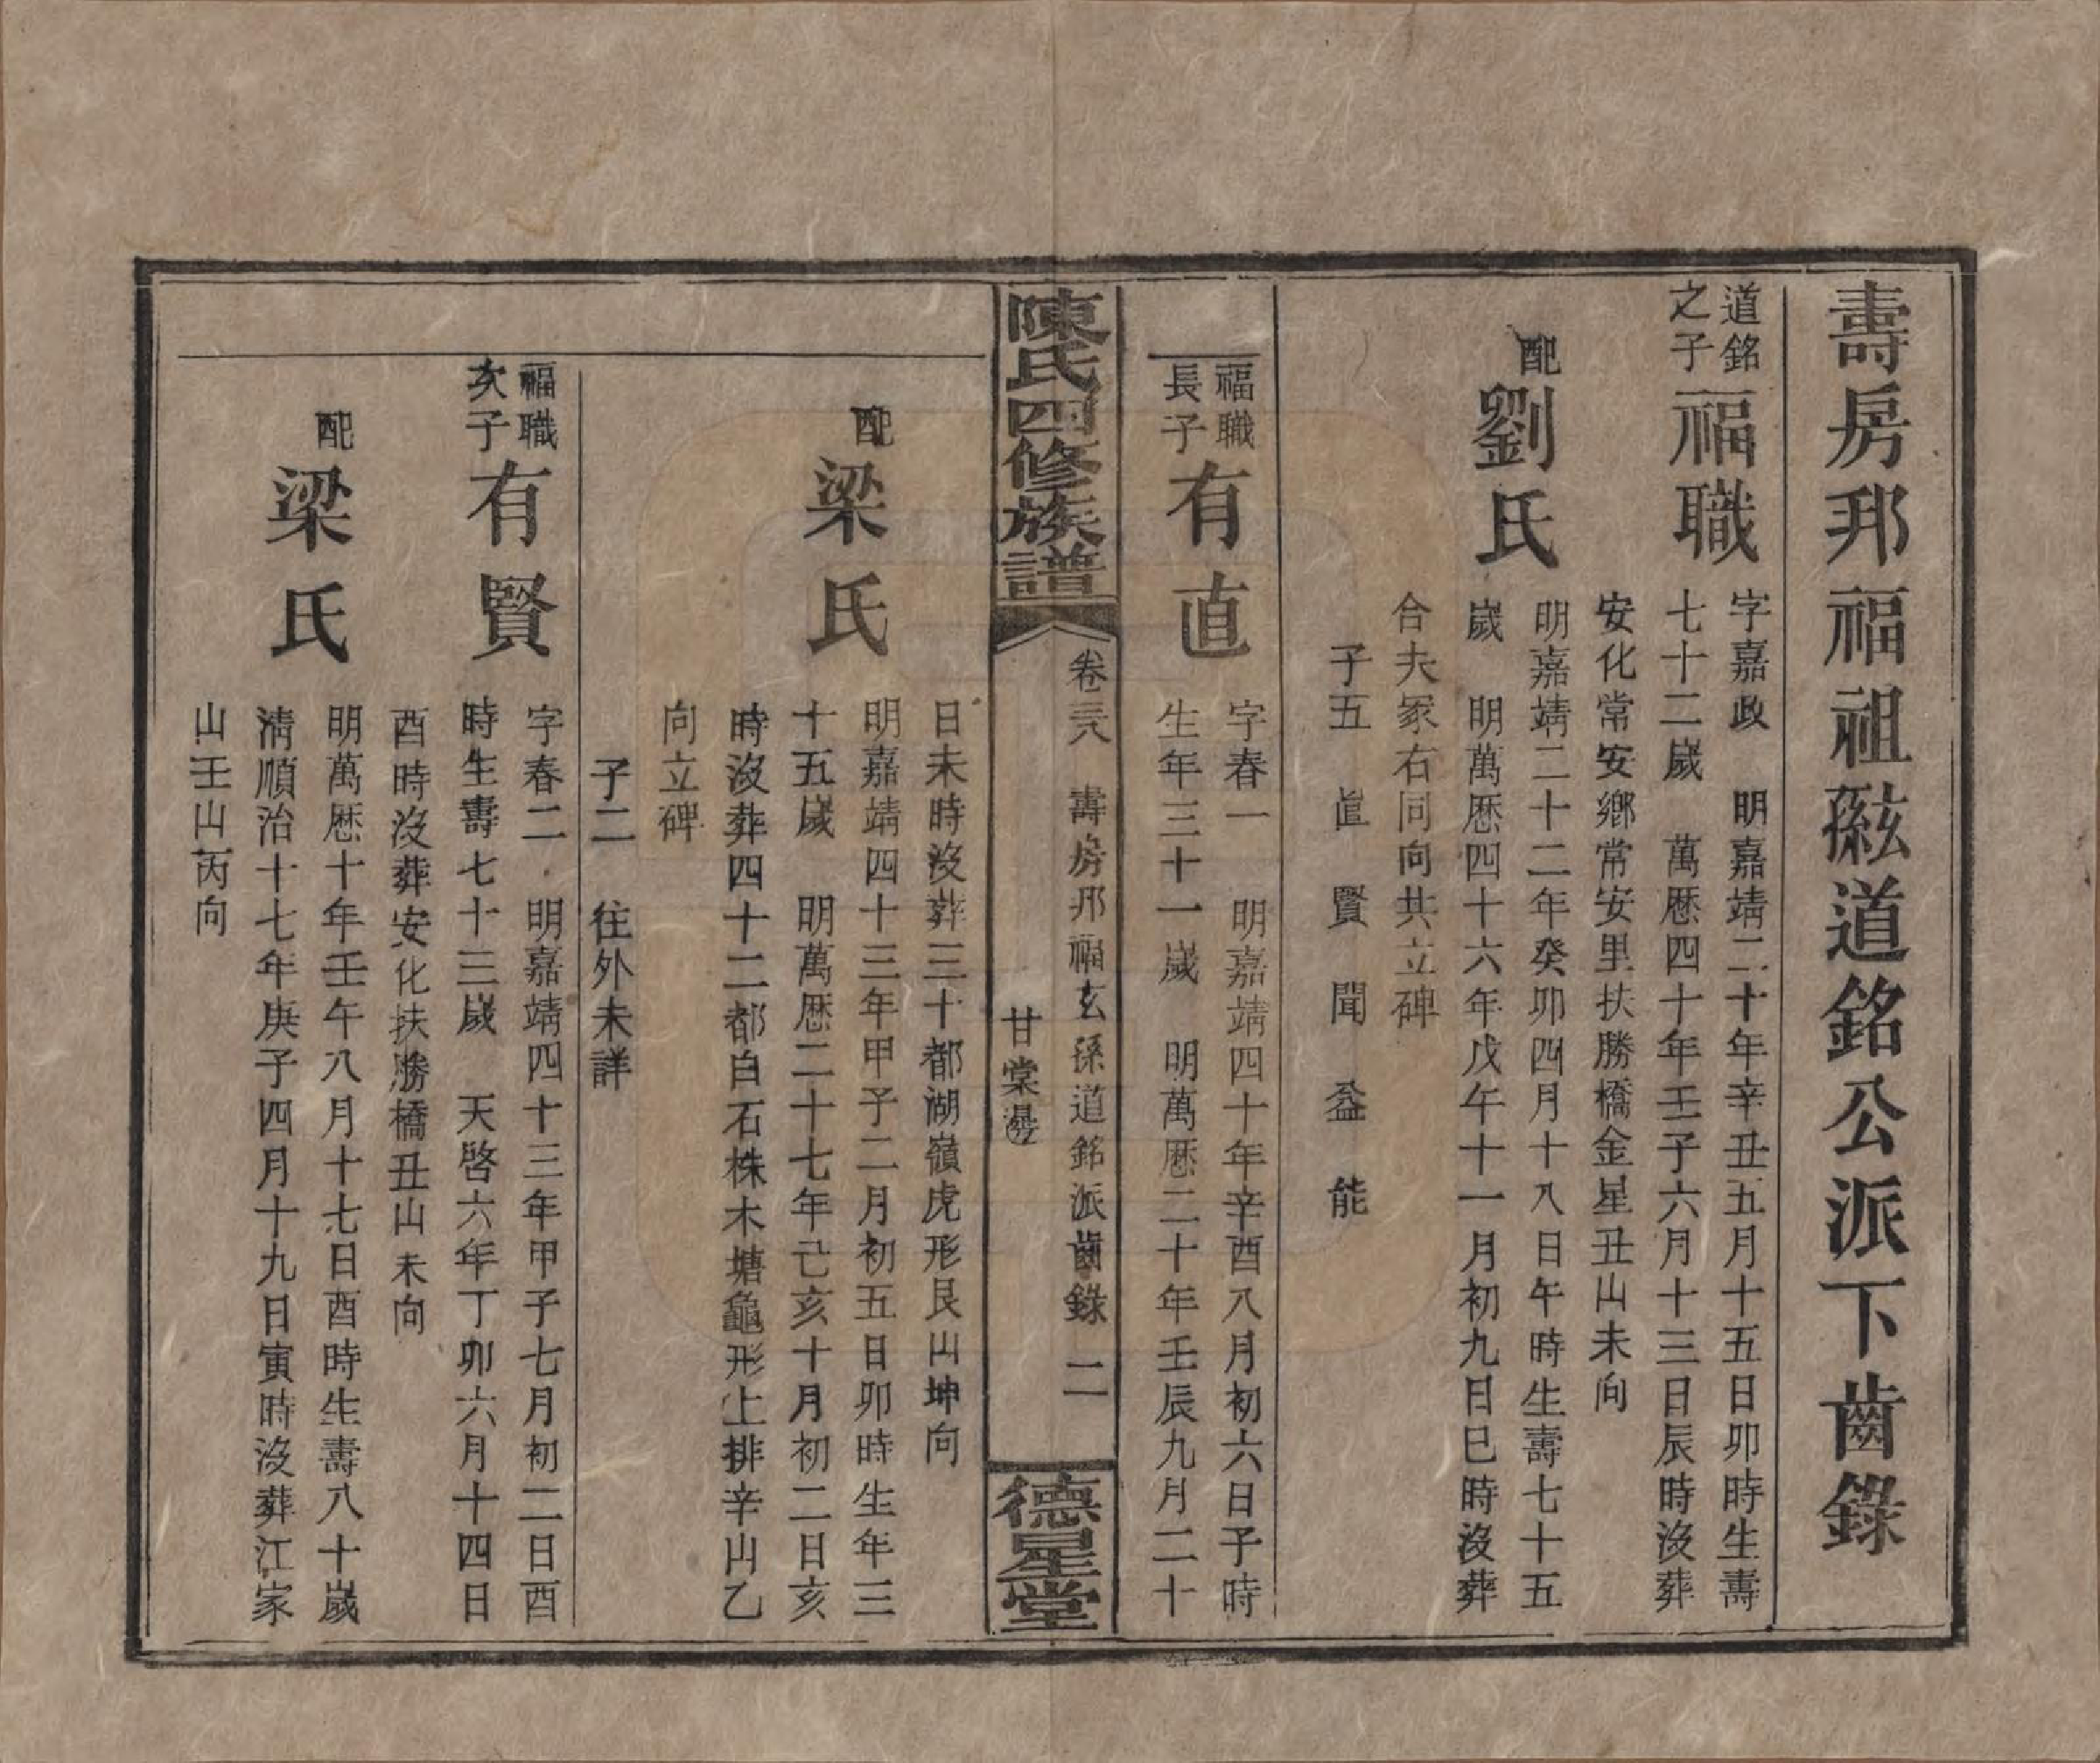 壽房邦福祖孫玄道銘公派下齒錄
道銘
之子
福職
字嘉政　明嘉靖二十年辛丑五月十五日卯時生壽
七十二歲　萬歷四十年壬子六月十三日辰時沒葬
安化常安鄉常安里扶勝橋金星丑山未向
配
劉氏
明嘉靖二十二年癸卯四月十八日午時生壽七十五
歲　明萬歷四十六年戊午十一月初九日巳時沒葬
合夫冢右同向共立碑
子五　直　賢　聞　益　能
福職
長子
有直
字春一　明嘉靖四十年辛酉八月初六日子時
生年三十一歲　明萬歷二十年壬辰九月二十
陳氏四修族譜
卷三八　壽房邦福玄孫道銘派齒錄　二
甘棠
德星堂
日未時沒葬三十都湖嶺虎形艮山坤向
配
梁氏
明嘉靖四十三年甲子二月初五日卯時生年三
十五歲　明萬歷二十七年己亥十月初二日亥
時沒葬四十二都白石株木塘龜形上排辛山乙
向立碑
子二　往外未詳
福職
次子
有賢
字春二　明嘉靖四十三年甲子七月初二日酉
時生壽七十三歲　天啓六年丁卯六月十四日
酉時沒葬安化扶勝橋丑山未向
配
梁氏
明萬歷十年壬午八月十七日酉時生壽八十歲
清順治十七年庚子四月十九日寅時沒葬江家
山壬山丙向